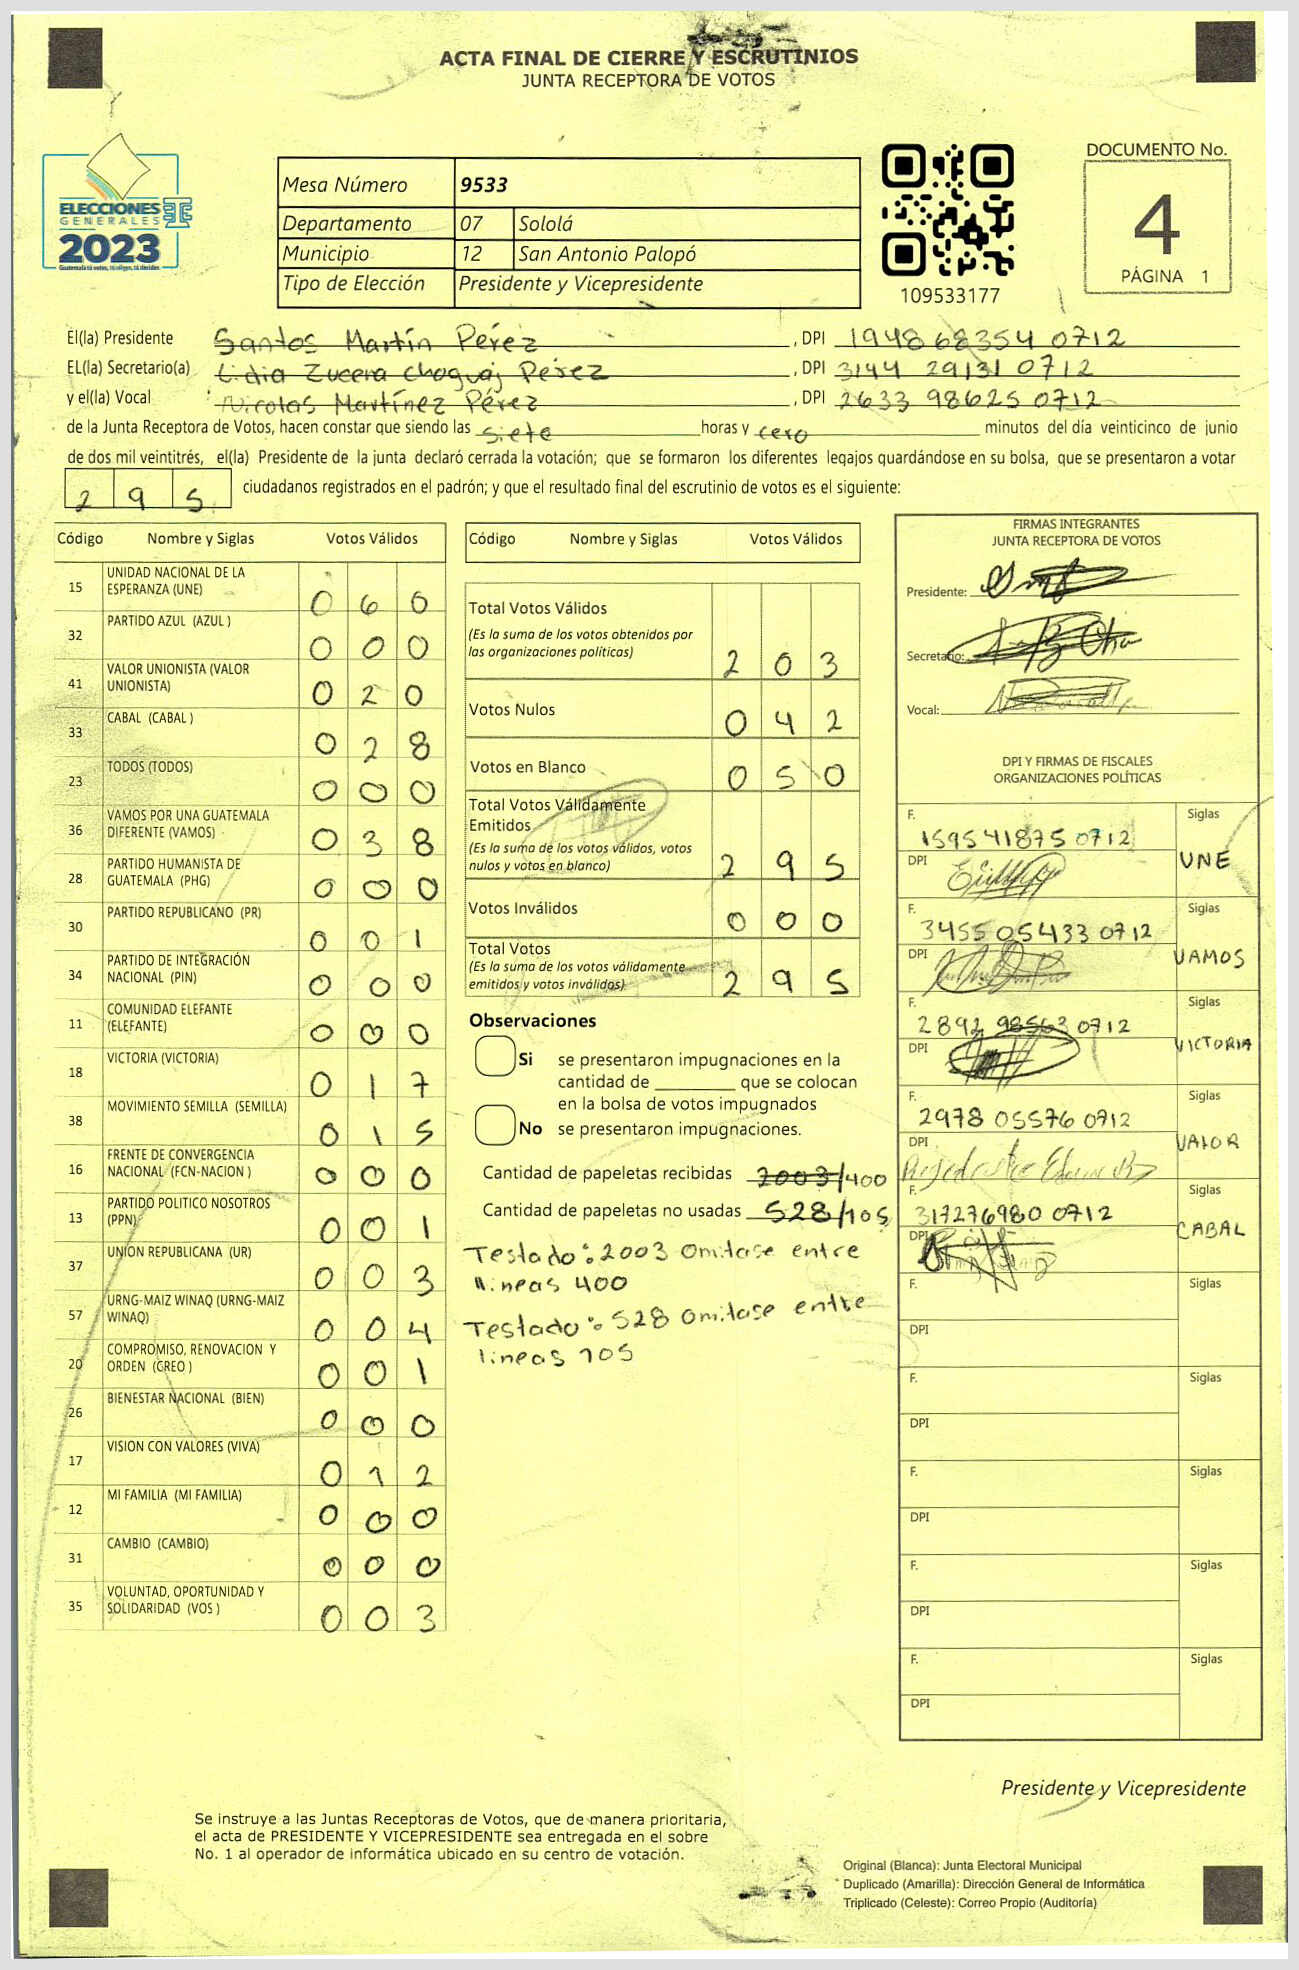 ACTA FINAL DE CIERRE Y ESCRUTINIOS
JUNTA RECEPTORA DE VOTOS
ELECCIONES
GENERALES
2023
Guatemala tú votas, tú eliges, tú decides
Mesa Número 9533
Departamento 07 Sololá
Municipio 12 San Antonio Palopó
Tipo de Elección Presidente y Vicepresidente
109533177
DOCUMENTO No.
4
PÁGINA 1
El(la) Presidente Santos Martín Pérez , DPI 1948 68354 0712
EL(la) Secretario(a) Lidia Zucera Choguaj Pérez , DPI 3144 29131 0712
y el(la) Vocal Nicolas Martínez Pérez , DPI 2633 98625 0712
de la Junta Receptora de Votos, hacen constar que siendo las siete horas y cero minutos del día veinticinco de junio
de dos mil veintitrés, el(la) Presidente de la junta declaró cerrada la votación; que se formaron los diferentes legajos guardándose en su bolsa, que se presentaron a votar
295 ciudadanos registrados en el padrón; y que el resultado final del escrutinio de votos es el siguiente:
Código Nombre y Siglas Votos Válidos
15 UNIDAD NACIONAL DE LA ESPERANZA (UNE) 060
32 PARTIDO AZUL (AZUL ) 000
41 VALOR UNIONISTA (VALOR UNIONISTA) 020
33 CABAL (CABAL ) 028
23 TODOS (TODOS) 000
36 VAMOS POR UNA GUATEMALA DIFERENTE (VAMOS) 038
28 PARTIDO HUMANISTA DE GUATEMALA (PHG) 000
30 PARTIDO REPUBLICANO (PR) 001
34 PARTIDO DE INTEGRACIÓN NACIONAL (PIN) 000
11 COMUNIDAD ELEFANTE (ELEFANTE) 000
18 VICTORIA (VICTORIA) 017
38 MOVIMIENTO SEMILLA (SEMILLA) 015
16 FRENTE DE CONVERGENCIA NACIONAL (FCN-NACION ) 000
13 PARTIDO POLITICO NOSOTROS (PPN) 001
37 UNION REPUBLICANA (UR) 003
57 URNG-MAIZ WINAQ (URNG-MAIZ WINAQ) 004
20 COMPROMISO, RENOVACION Y ORDEN (CREO ) 001
26 BIENESTAR NACIONAL (BIEN) 000
17 VISION CON VALORES (VIVA) 012
12 MI FAMILIA (MI FAMILIA) 000
31 CAMBIO (CAMBIO) 000
35 VOLUNTAD, OPORTUNIDAD Y SOLIDARIDAD (VOS ) 003
Código Nombre y Siglas Votos Válidos
Total Votos Válidos
(Es la suma de los votos obtenidos por
las organizaciones políticas) 203
Votos Nulos 042
Votos en Blanco 050
Total Votos Válidamente
Emitidos
(Es la suma de los votos válidos, votos
nulos y votos en blanco) 295
Votos Inválidos 000
Total Votos
(Es la suma de los votos válidamente
emitidos y votos inválidos) 295
Observaciones
Si se presentaron impugnaciones en la
cantidad de ________ que se colocan
en la bolsa de votos impugnados
No se presentaron impugnaciones.
Cantidad de papeletas recibidas 2003/400
Cantidad de papeletas no usadas 528/105
Testado: 2003 Omitase entre
lineas 400
Testado: 528 omitase entre
lineas 105
FIRMAS INTEGRANTES
JUNTA RECEPTORA DE VOTOS
Presidente:
Secretario:
Vocal:
DPI Y FIRMAS DE FISCALES
ORGANIZACIONES POLÍTICAS
F. 1595 41875 0712 Siglas
DPI UNE
F. 3455 05433 0712 Siglas
DPI VAMOS
F. 2892 98563 0712 Siglas
DPI VICTORIA
F. 2978 05576 0712 Siglas
DPI VALOR
F. 317276980 0712 Siglas
DPI CABAL
F. Siglas
DPI
F. Siglas
DPI
F. Siglas
DPI
F. Siglas
DPI
F. Siglas
DPI
Presidente y Vicepresidente
Se instruye a las Juntas Receptoras de Votos, que de manera prioritaria,
el acta de PRESIDENTE Y VICEPRESIDENTE sea entregada en el sobre
No. 1 al operador de informática ubicado en su centro de votación.
Original (Blanca): Junta Electoral Municipal
Duplicado (Amarilla): Dirección General de Informática
Triplicado (Celeste): Correo Propio (Auditoría)